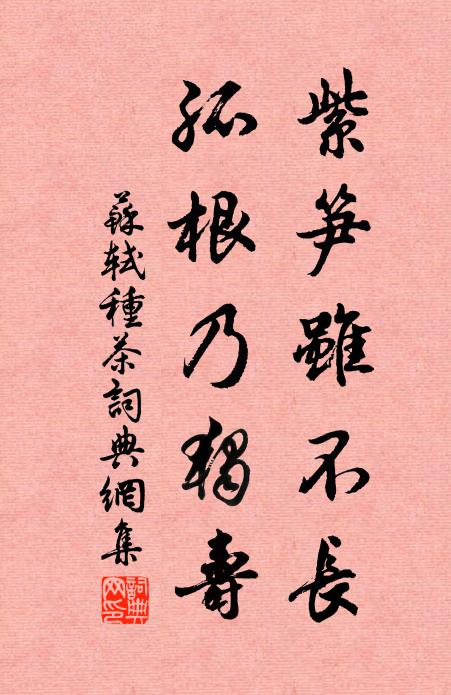 紫笋雖不長
孤根乃獨壽
蘇軾種茶詞典網集
詞典網印